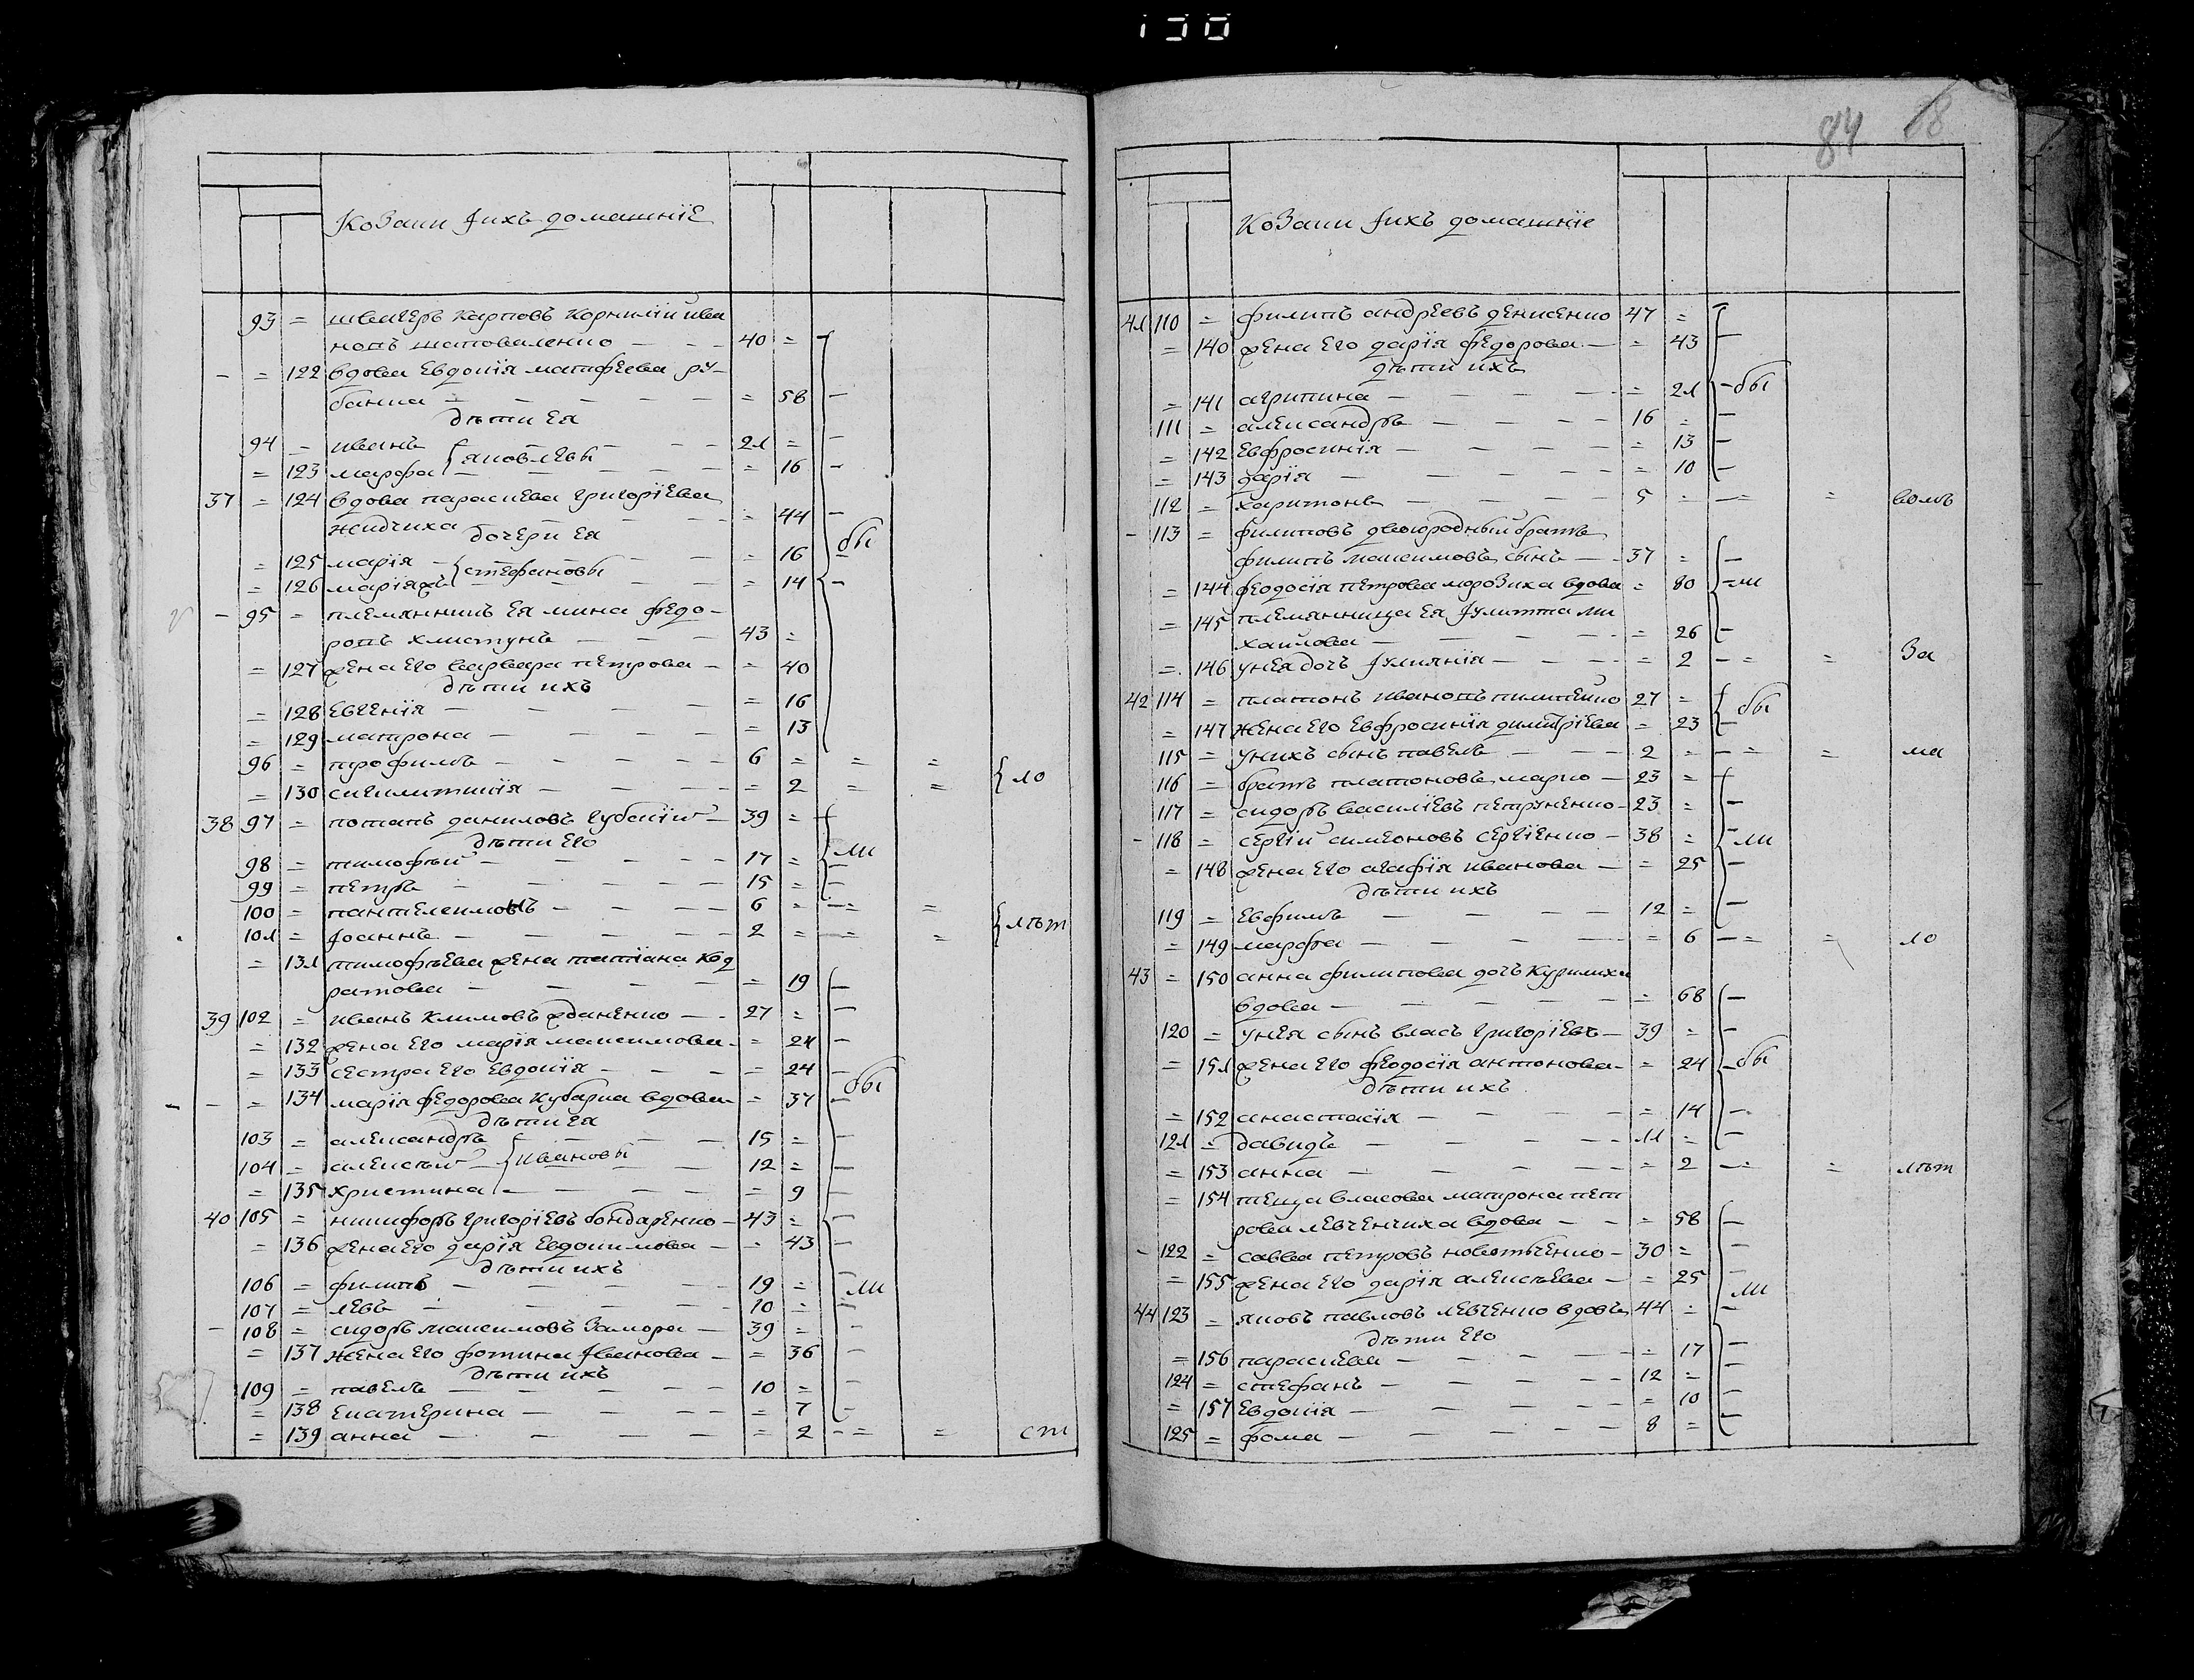 130
Козаки іихъ домашнїе
93 = швагеръ карповъ корнилїй ива
новъ шаповаленко - - - 40 = -
- = 122 вдова Евдокїя матфеева ру-
банка - - - - - = 58 -
дѣти Ея
94 = иванъ - - - 21 = -
яковлевы
= 123 марфа - - - = 16 -
37 = 124 вдова параскева григорїева
жидчиха - - - = 44 -
дочери Ея
бы
= 125 марїя - - - = 16 -
стефановы
= 126 марїяжъ - - - = 14 -
- 95 = племянникъ Ея мина федо-
ровъ хлистунъ - - - 43 =
= 127 жена Его варвара петрова - = 40
дѣти ихъ
= 128 Евгенїя - - - - = 16
= 129 матрона - - - - = 13
96 = трофимъ - - - - 6 = = =
ло
= 130 сигклитикїя - - - = 2 = =
38 97 = потапъ даниловъ губскїй - 39 = -
дѣти Его
ли
98 = тимофѣй - - - - 17 = -
99 = петръ - - - - 15 = -
100 = пантелеимонъ - - - 6 = - = =
лѣт
101 = Іоаннъ - - - - 2 = - = =
= 131 тимофѣева жена татїана код
ратова - - - - = 19 -
39 102 = иванъ климовъ жданенко - - 27 = -
= 132 жена Его марїя максимова - = 24 -
= 133 сестра Его Евдокїя - - - = 24 -
бы
- = 134 марїя федорова кубарка вдова - = 37 -
дѣти Ея
103 = александръ - - - 15 = -
ивановы
104 = алексѣй - - - 12 = -
= 135 христина - - - = 9 -
40 105 = никифоръ григорїевъ бондаренко - 43 = -
= 136 жена Его дарїя Евдокимова - = 43 -
дѣти ихъ
106 = филипъ - - - - 19 = -
ли
107 = левъ - - - - 10 = -
- 108 = сидоръ максимовъ замора - 39 = -
= 137 жена Его фотина Іванова - = 36 -
дѣти ихъ
109 = павелъ - - - - 10 = -
= 138 Екатерина - - - - = 7 -
= 139 анна - - - - = 2 - = = ст
84 88
Козаки іихъ домашнїе
41 110 = филипъ андреевъ денисенко 47 = -
= 140 жена Его дарїя федорова - = 43 -
дѣти ихъ
= 141 агрипина - - - - = 21 - бы
111 = александръ - - - - 16 = -
= 142 Евфросинїя - - - - = 13 -
= 143 дарїя - - - - = 10 -
112 = харитонъ - - - - 5 = - = = вомъ
- 113 = филиповъ двоюродный братъ
филипъ максимовъ сынъ - 37 = -
= 144 феодосїя петрова морозиха вдова = 80 -
= 145 племянница Ея Іулитта ми
хайлова - - - - = 26 -
= 146 унея дочъ Іулиянїя - - - = 2 - = = За
42 114 = платонъ ивановъ пилипенко 27 =
бы
= 147 жена Его Евфросинїя димитрїева = 23 -
115 = унихъ сынъ павелъ - - - 2 = - = = ма
116 = братъ платоновъ марко - 23 = -
117 = сидоръ василїевъ петруненко - 23 = -
- 118 = сергїй симеоновъ сергїенко - 38 = - ли
= 148 жена Его агафїя иванова - = 25 -
дѣти ихъ
119 = Евфимъ - - - - 12 = -
= 149 марфа - - - - = 6 - = = ло
43 = 150 анна филипова дочъ Курилиха
вдова - - - - = 68 -
120 = унея сынъ власъ григорїевъ - 39 = -
= 151 жена Его феодосїя антонова - = 24 - бы
дѣти ихъ
= 152 анастасїя - - - - = 14 -
121 = давидъ - - - - 11 = -
= 153 анна - - - - = 2 - = = лѣт
= 154 теща власова матрона пет
рова левченчиха вдова - - = 58 -
- 122 = савва петровъ - 30 = -
= 155 жена Его дарїя алексѣева - = 25 -
ли
44 123 = яковъ павловъ левченко вдовъ 44 = -
дѣти Его
= 156 параскева - - - - = 17 -
124 = стефанъ - - - - 12 = -
= 157 Евдокїя - - - - = 10 -
125 = фома - - - - 8 = -